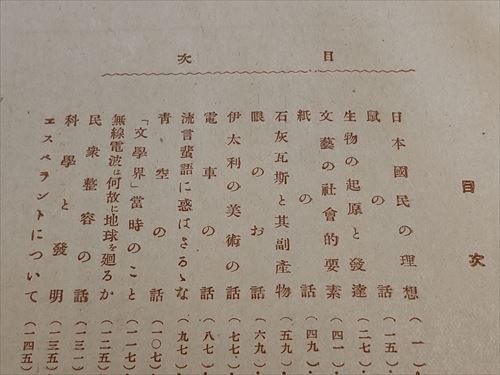 目次
目次
日本國民の理想（一）
鼠の話（一五）
生物の起原と發達（二七）
文藝の社會的要素（四一）
紙の話（四九）
石灰瓦斯と其副產物（五九）
眼のお話（六九）
伊太利の美術の話（七七）
電車の話（八七）
流言蜚語に惑はさるゝな（九七）
靑空の話（一〇七）
「文學界」當時のこと（一一七）
無線電波は何故に地球を廻るか（一二五）
民衆整容の話（一三一）
科學と發明（一三五）
エスペラントについて（一四五）